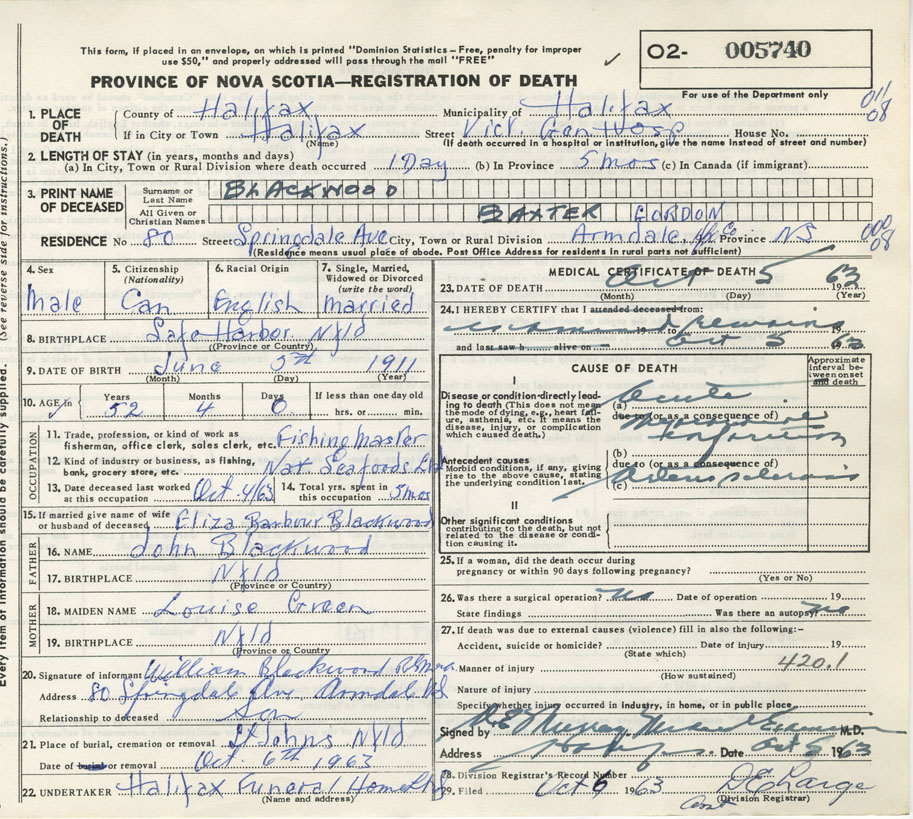 This form, if placed in an envelope, on which is printed "Dominion Statistics – Free, penalty for improper
use $50," and properly addressed will pass through the mail "FREE"
✓
O2- 005740
For use of the Department only
PROVINCE OF NOVA SCOTIA—REGISTRATION OF DEATH
011
08
1. PLACE OF DEATH
County of Halifax Municipality of Halifax
If in City or Town Halifax Street Vict. Gen Hosp House No.
(Name) (If death occurred in a hospital or institution, give the name instead of street and number)
2. LENGTH OF STAY (in years, months and days)
(a) In City, Town or Rural Division where death occurred 1 Day (b) In Province 5 mos (c) In Canada (if immigrant)
3. PRINT NAME OF DECEASED
Surname or Last Name BLACKWOOD
All Given or Christian Names BAXTER GORDON
RESIDENCE No 80 Street Springdale Ave City, Town or Rural Division Armdale, Hfx Co Province NS
000
08
(Residence means usual place of abode. Post Office Address for residents in rural parts not sufficient)
4. Sex Male
5. Citizenship (Nationality) Can
6. Racial Origin English
7. Single, Married, Widowed or Divorced (write the word) married
8. BIRTHPLACE Safe Harbor Nfld
(Province or Country)
9. DATE OF BIRTH June 5th 1911
(Month) (Day) (Year)
10. AGE in Years 52 Months 4 Days 0 If less than one day old
hrs. or min.
OCCUPATION
11. Trade, profession, or kind of work as
fisherman, office clerk, sales clerk, etc. Fishing Master
12. Kind of industry or business, as fishing,
bank, grocery store, etc. Nat Seafoods Ltd
13. Date deceased last worked at this occupation Oct. 4/63 14. Total yrs. spent in this occupation 5 mos
15. If married give name of wife
or husband of deceased Eliza Barbour Blackwood
FATHER
16. NAME John Blackwood
17. BIRTHPLACE Nfld
(Province or Country)
MOTHER
18. MAIDEN NAME Louise Green
19. BIRTHPLACE Nfld
(Province or Country)
20. Signature of informant William Blackwood
Address 80 Springdale Ave Armdale NS
Relationship to deceased Son
21. Place of burial, cremation or removal St Johns Nfld
Date of burial or removal Oct. 6th 1963
22. UNDERTAKER Halifax Funeral Home Ltd
(Name and address)
MEDICAL CERTIFICATE OF DEATH
23. DATE OF DEATH Oct 5 1963
(Month) (Day) (Year)
24. I HEREBY CERTIFY that I attended deceased from:
19 to remains 19
and last saw h alive on Oct 5 63
CAUSE OF DEATH
Approximate interval between onset and death
I
Disease or condition directly leading to death (This does not mean the mode of dying, e.g., heart failure, asthenia, etc. It means the disease, injury, or complication which caused death.)
(a) Acute
due to (or as a consequence of)
Myocardial
Infarction
(b)
Antecedent causes
Morbid conditions, if any, giving rise to the above cause, stating the underlying condition last.
due to (or as a consequence of)
(c) Arteriosclerosis
II
Other significant conditions
contributing to the death, but not related to the disease or condition causing it.
25. If a woman, did the death occur during
pregnancy or within 90 days following pregnancy?
(Yes or No)
26. Was there a surgical operation? no Date of operation 19
State findings Was there an autopsy? no
27. If death was due to external causes (violence) fill in also the following:–
Accident, suicide or homicide? Date of injury 19
(State which)
Manner of injury 420.1
(How sustained)
Nature of injury
Specify whether injury occurred in Industry, in home, or in public place
Signed by Murray Medical Examiner M.D.
Address Halifax Date Oct 5 1963
28. Division Registrar's Record Number
29. Filed Oct 6 1963 D E Large
Asst (Division Registrar)
Every item of information should be carefully supplied. (See reverse side for instructions.)